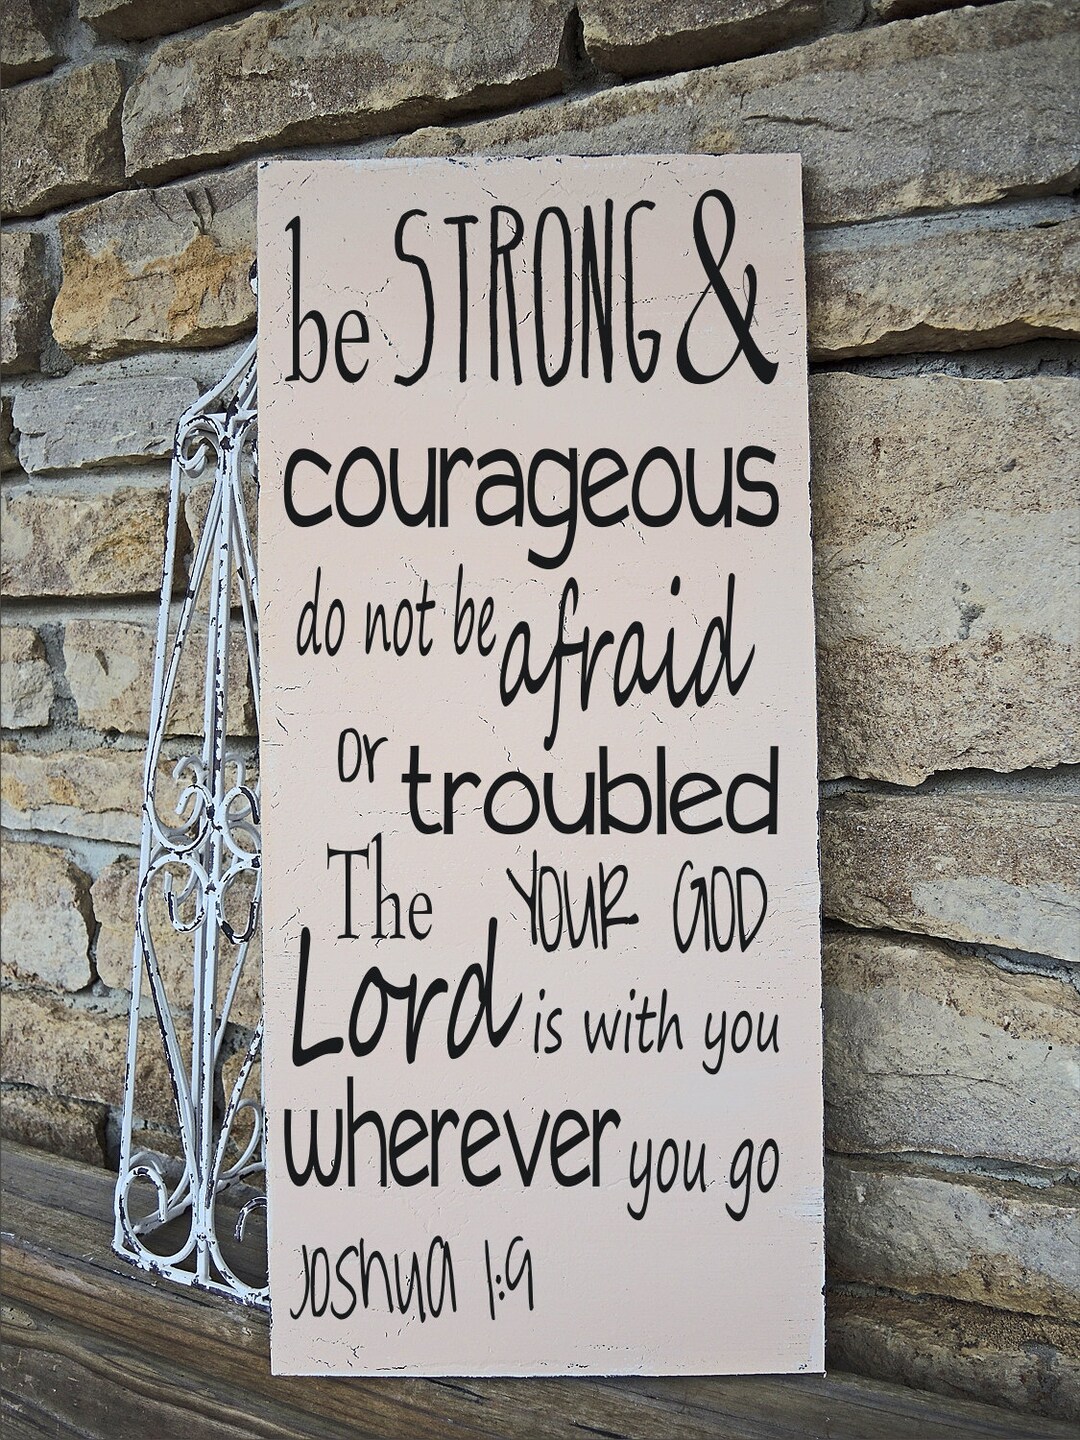 be STRONG &
courageous
do not be afraid
or troubled
The YOUR GOD
Lord is with you
wherever you go
Joshua 1:9